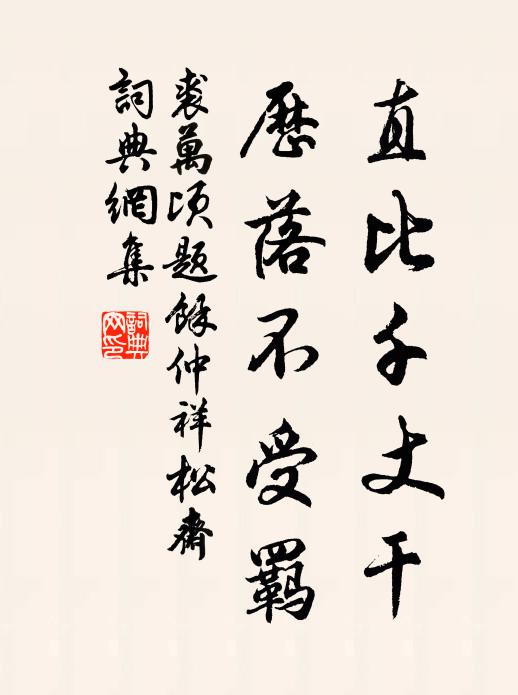 直比千丈干
歷落不受羈
裘萬頃題餘仲祥松齋
詞典網集
詞典
网印